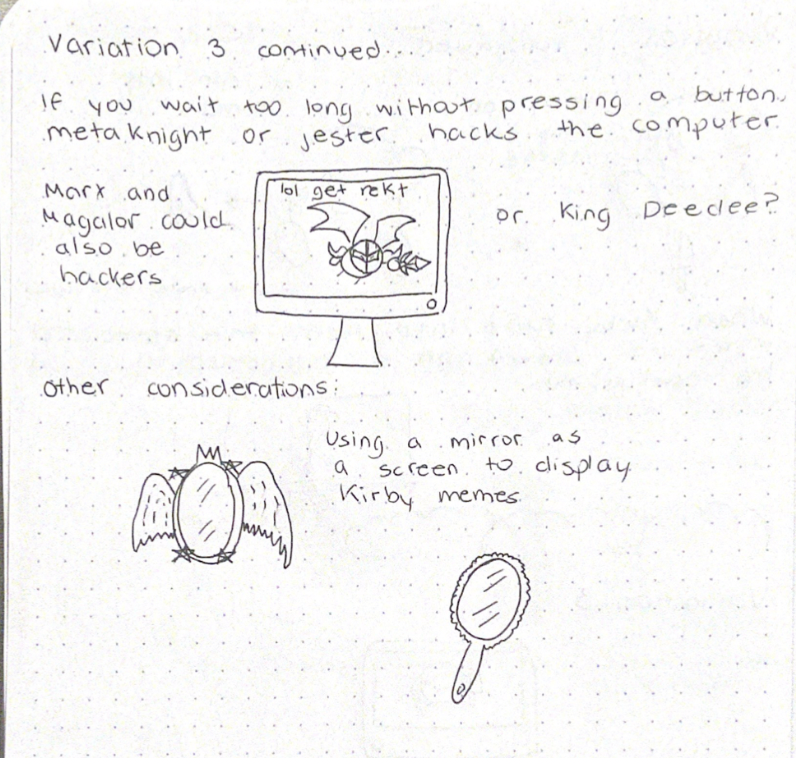 Variation 3 continued...
If you wait too long without pressing a button
metaknight or jester hacks the computer
Marx and
Magalor could
also be
hackers
lol get rekt
or King Deedee?
other considerations:
Using a mirror as
a screen to display
Kirby memes